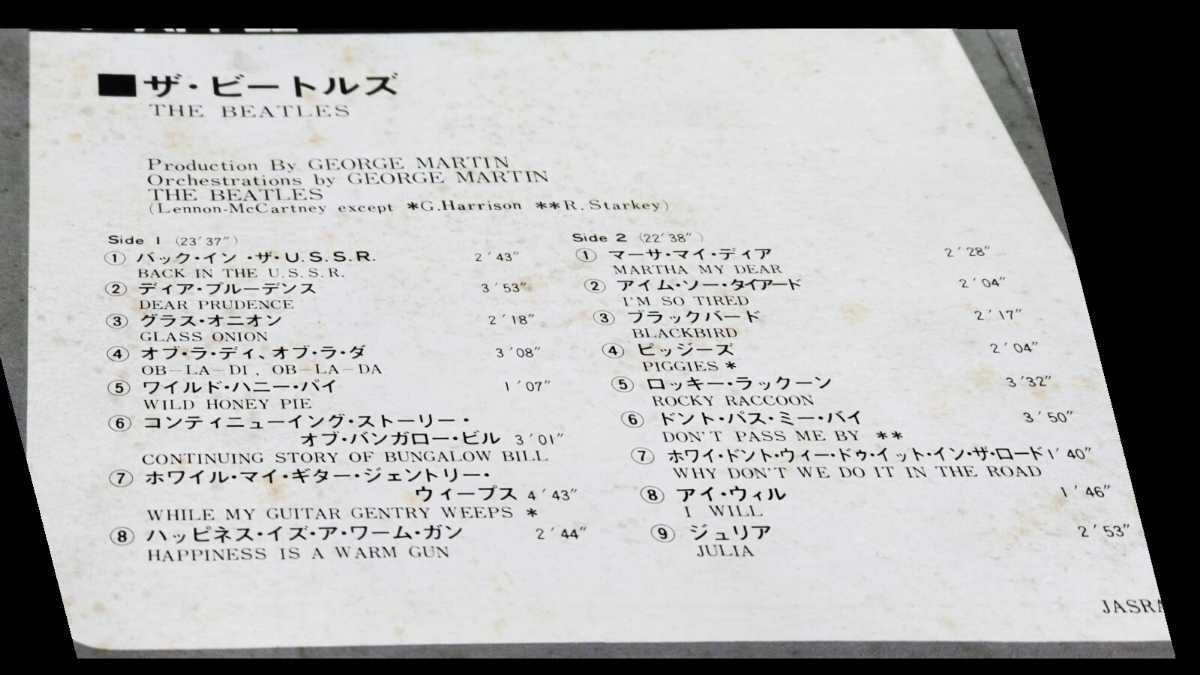 ■ザ・ビートルズ
THE BEATLES
Production By GEORGE MARTIN
Orchestrations by GEORGE MARTIN
THE BEATLES
(Lennon-McCartney except *G.Harrison **R.Starkey)
Side 1 (23'37")
① バック・イン・ザ・U.S.S.R. 2'43"
BACK IN THE U.S.S.R.
② ディア・プルーデンス 3'53"
DEAR PRUDENCE
③ グラス・オニオン 2'18"
GLASS ONION
④ オブ・ラ・ディ、オブ・ラ・ダ 3'08"
OB-LA-DI, OB-LA-DA
⑤ ワイルド・ハニー・パイ 1'07"
WILD HONEY PIE
⑥ コンティニューイング・ストーリー・
オブ・バンガロー・ビル 3'01"
CONTINUING STORY OF BUNGALOW BILL
⑦ ホワイル・マイ・ギター・ジェントリー・
ウィープス 4'43"
WHILE MY GUITAR GENTRY WEEPS *
⑧ ハッピネス・イズ・ア・ワーム・ガン 2'44"
HAPPINESS IS A WARM GUN
Side 2 (22'38")
① マーサ・マイ・ディア 2'28"
MARTHA MY DEAR
② アイム・ソー・タイアード 2'04"
I'M SO TIRED
③ ブラックバード 2'17"
BLACKBIRD
④ ピッジーズ 2'04"
PIGGIES *
⑤ ロッキー・ラックーン 3'32"
ROCKY RACCOON
⑥ ドント・パス・ミー・バイ 3'50"
DON'T PASS ME BY **
⑦ ホワイ・ドント・ウィー・ドゥ・イット・イン・ザ・ロード 1'40"
WHY DON'T WE DO IT IN THE ROAD
⑧ アイ・ウィル 1'46"
I WILL
⑨ ジュリア 2'53"
JULIA